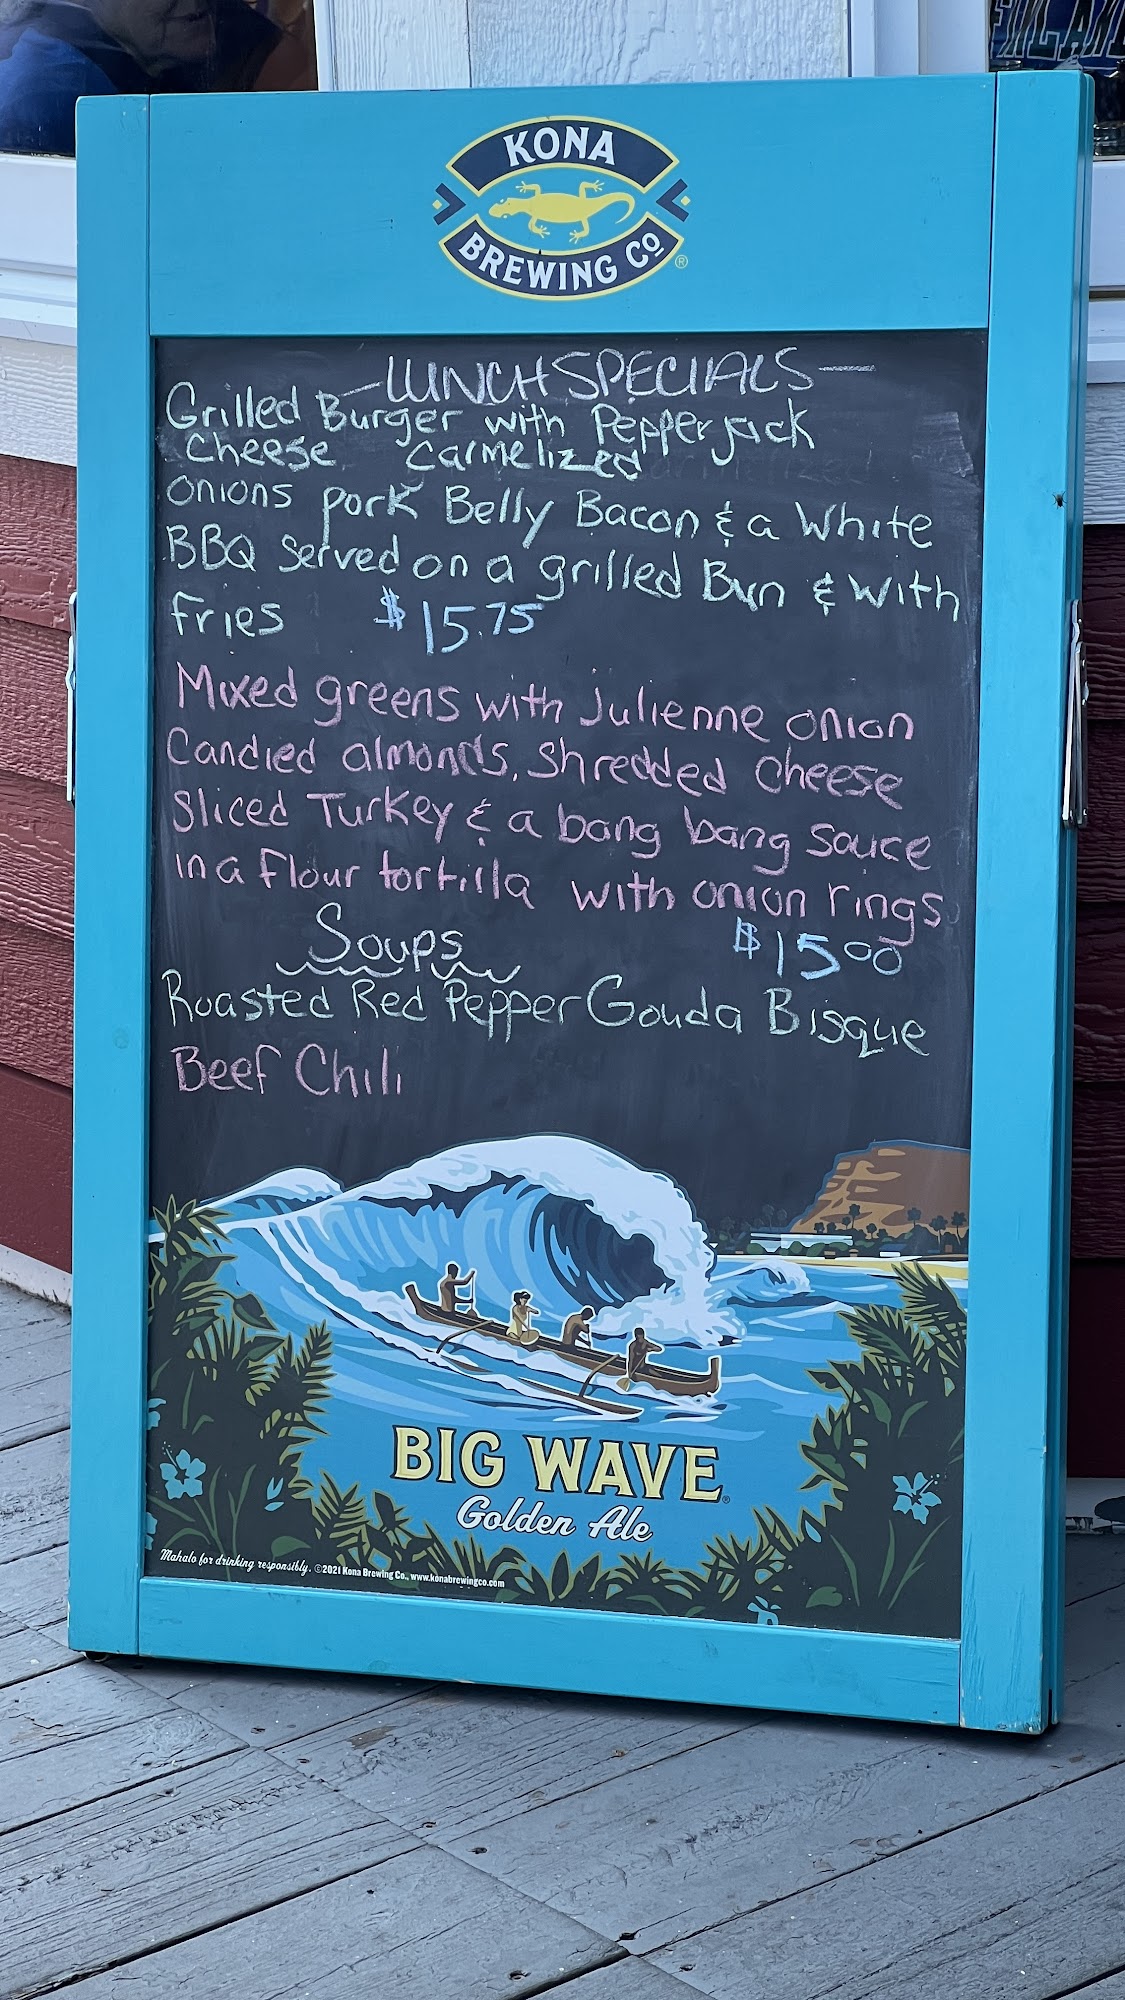 KONA
BREWING CO.®
LUNCH SPECIALS
Grilled Burger with Pepper jack
Cheese Carmelized
onions pork Belly Bacon & a White
BBQ Served on a grilled Bun & with
fries $15.75
Mixed greens with Julienne onion
Candied almonds, shredded cheese
Sliced Turkey & a bang bang sauce
in a flour tortilla with onion rings
$15.00
Soups
Roasted Red Pepper Gouda Bisque
Beef Chili
BIG WAVE
Golden Ale
Mahalo for drinking responsibly. ©2021 Kona Brewing Co., www.konabrewingco.com